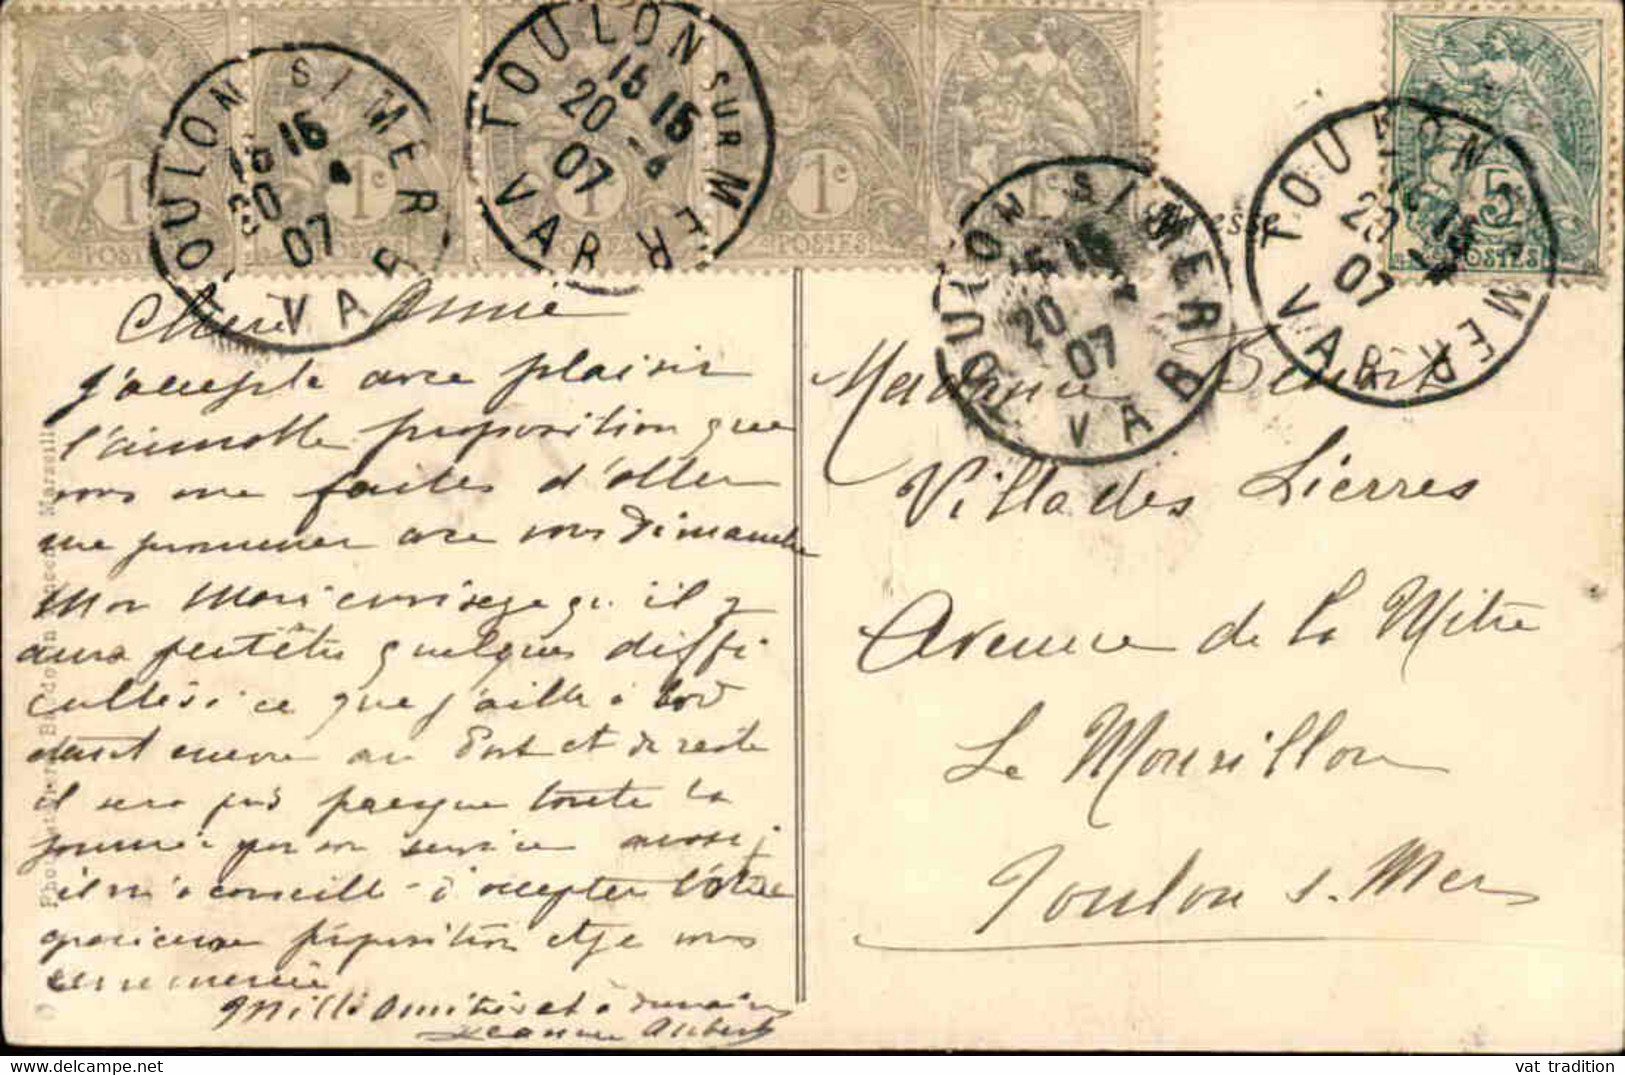 1c POSTES
1c
1c
1c POSTES
5c POSTES
TOULON S/MER
15 15
20
07
VAR
TOULON SUR MER
15 15
20 -4
07
VAR
TOULON S/MER
15 15
20
07
VAR
TOULON S MER
15 15
20
07
VAR
Chère Amie
j'accepte avec plaisir
l'aimable proposition que
vous me faites d'aller
me promener avec vous Dimanche
Mon Mari envisage qu'il y
aura peutêtre quelques diffi
cultés à ce que j'aille à bord
étant encore au Port et de reste
il sera pris presque toute la
journée par son service aussi
il m'a conseillé d'accepter votre
gracieuse proposition et je vous
en remercie
Mille Amitiés et à demain
Jeanne Aubert
Madame Benoit
Villa des Lierres
Avenue de La Mitre
Le Mourillon
Toulon s. Mer
Marseille
vat tradition